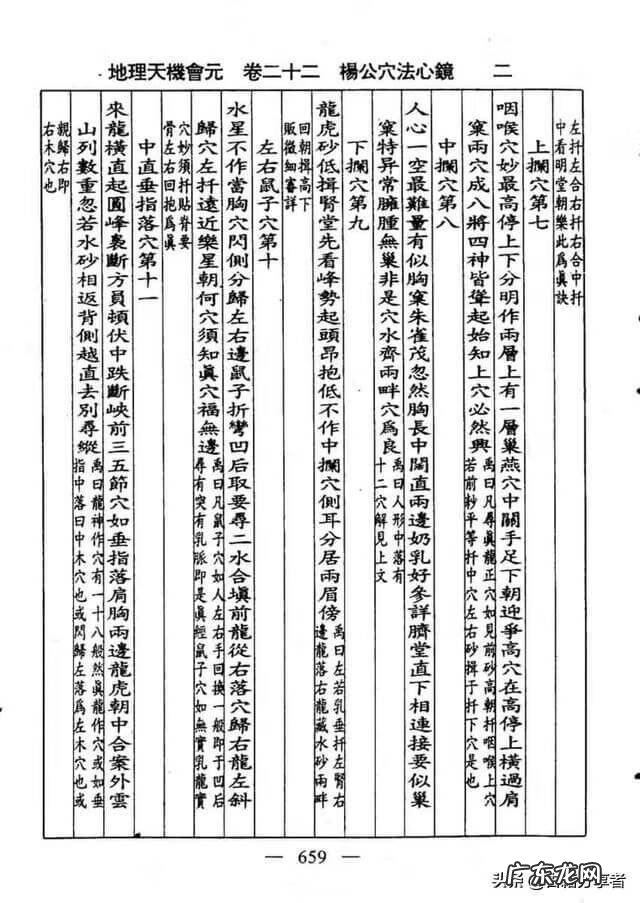 地理天機會元　卷二十二　楊公穴法心鏡　二
左扦左合右扦右合中扦
中看明堂朝樂此爲眞訣
上攔穴第七
咽喉穴妙最高停上下分明作兩層上有一層巢燕穴中關手足下朝迎爭高穴在高停上橫過肩
窠兩穴成八將四神皆聳起始知上穴必然興
禹曰凡尋眞龍正穴如見前砂高朝扦咽喉上穴
若前紗平等扦中穴左右砂揖于扦下穴是也
中攔穴第八
人心一空最難量有似胸窠朱雀茂忽然胸長中闊直兩邊奶乳好參詳臍堂直下相連接要似巢
窠特异常臃腫無巢非是穴水齊兩畔穴爲良
禹曰人形中落有
十二穴解見上文
下攔穴第九
龍虎砂低揖腎堂先看峰勢起頭昂抱低不作中攔穴側耳分居兩眉傍
禹曰左若乳垂扦左腎右
邊龍落右龍藏水砂兩畔
回朝揖高下
販微細審詳
左右鼠子穴第十
水星不作當胸穴閃側分歸左右邊鼠子折彎凹后取要尋二水合塡前龍從右落穴歸右龍左斜
歸穴左扦遠近樂星朝何穴須知眞穴福無邊
禹曰凡鼠子穴如人左右手回換一般即于凹后
尋有突有乳脈即是眞經鼠子穴如無實乳龍實
穴妙須扦貼脊要
骨左右回抱爲眞
中直垂指落穴第十一
來龍橫直起圓峰裊斷方員頓伏中跌斷峽前三五節穴如垂指落肩胸兩邊龍虎朝中合案外雲
山列數重忽若水砂相返背側越直去別尋縱
禹曰龍神作穴有一十八般然眞龍作穴或如垂
指中落曰中木穴也或閃歸左落爲左木穴也或
親歸右即
右木穴也
— 659 —
广东龙网